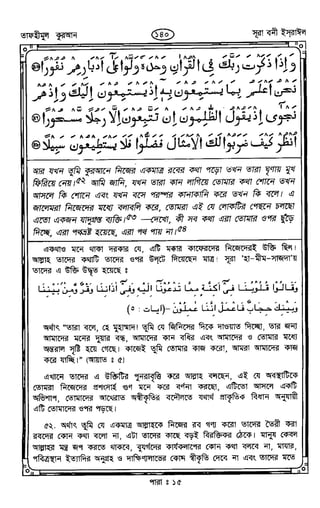 তাফহীমুল কুরআন
১৪০
সূরা বনী ইসরাঈল
وَإِذَا ذَكَرْتَ رَبَّكَ فِي الْقُرْآنِ وَحْدَهُ وَلَّوْا عَلَىٰ أَدْبَارِهِمْ نُفُورًا ﴿٤٦﴾
نَحْنُ أَعْلَمُ بِمَا يَسْتَمِعُونَ بِهِ إِذْ يَسْتَمِعُونَ إِلَيْكَ وَإِذْ هُمْ
نَجْوَىٰ إِذْ يَقُولُ الظَّالِمُونَ إِنْ تَتَّبِعُونَ إِلَّا رَجُلًا مَسْحُورًا ﴿٤٧﴾
انْظُرْ كَيْفَ ضَرَبُوا لَكَ الْأَمْثَالَ فَضَلُّوا فَلَا يَسْتَطِيعُونَ سَبِيلًا ﴿٤٨﴾
আর যখন তুমি কুরআনে নিজের একমাত্র রবের কথা পড়ো তখন তারা ঘৃণায় মুখ
ফিরিয়ে নেয়।৫২ আমি জানি, যখন তারা কান লাগিয়ে তোমার কথা শোনে তখন
আসলে কি শোনে এবং যখন বসে পরস্পর কানাকানি করে তখন কি বলে। এ
জালেমরা নিজেদের মধ্যে বলাবলি করে, তোমরা এই যে লোকটির পেছনে চলছো
এতো একজন যাদুগ্রস্ত ব্যক্তি।৫৩ —দেখো, কী সব কথা এরা তোমার ওপর ছুঁড়ে
দিচ্ছে, এরা পথভ্রষ্ট হয়েছে, এরা পথ পায় না।৫৪
একথাও মনে থাকা দরকার যে, এটি মক্কার কাফেরদের নিজেদেরই উক্তি ছিল।
আল্লাহ তাদের কথাটি তাদের ওপর উল্টে দিয়েছেন মাত্র। সূরা 'হা-মীম-সাজদা'য়
তাদের এ উক্তি উদ্ধৃত হয়েছে :
وَقَالُوا قُلُوبُنَا فِي أَكِنَّةٍ مِّمَّا تَدْعُونَا إِلَيْهِ وَفِي آذَانِنَا وَقْرٌ وَمِنْ بَيْنِنَا
وَبَيْنِكَ حِجَابٌ فَاعْمَلْ إِنَّنَا عَامِلُونَ - (آيات : ٥)
অর্থাৎ "তারা বলে, হে মুহাম্মাদ! তুমি যে জিনিসের দিকে দাওয়াত দিচ্ছো, তার জন্য
আমাদের মনের দুয়ার বন্ধ, আমাদের কান বধির এবং আমাদের ও তোমার মধ্যে
অন্তরাল সৃষ্টি হয়ে গেছে। কাজেই তুমি তোমার কাজ করো, আমরা আমাদের কাজ
করে যাচ্ছি।" (আয়াত : ৫)
এখানে তাদের এ উক্তিটির পুনরাবৃত্তি করে আল্লাহ বলছেন, এই যে অবস্থাটিকে
তোমরা নিজেদের প্রশংসার্হ গুণ মনে করে বর্ণনা করছো, এটিতো আসলে একটি
অভিশাপ, তোমাদের আখেরাত অস্বীকৃতির বদৌলতে যথার্থ প্রাকৃতিক বিধান অনুযায়ী
এটি তোমাদের ওপর পড়ছে।
৫২. অর্থাৎ তুমি যে একমাত্র আল্লাহকে নিজের রব গণ্য করো তাদের তৈরী করা
রবদের কোন কথা বলো না, এটা তাদের কাছে বড়ই বিরক্তিকর ঠেকে। মানুষ কেবল
আল্লাহর মন্ত্র জপ করতে থাকবে, বুযর্গদের কার্যকলাপের কোন কথা বলবে না, মাযার,
পবিত্রস্থান ইত্যাদির অনুগ্রহ ও দাক্ষিণ্যলাভের কোন স্বীকৃতি দেবে না এবং তাদের মতে
পারা : ১৫